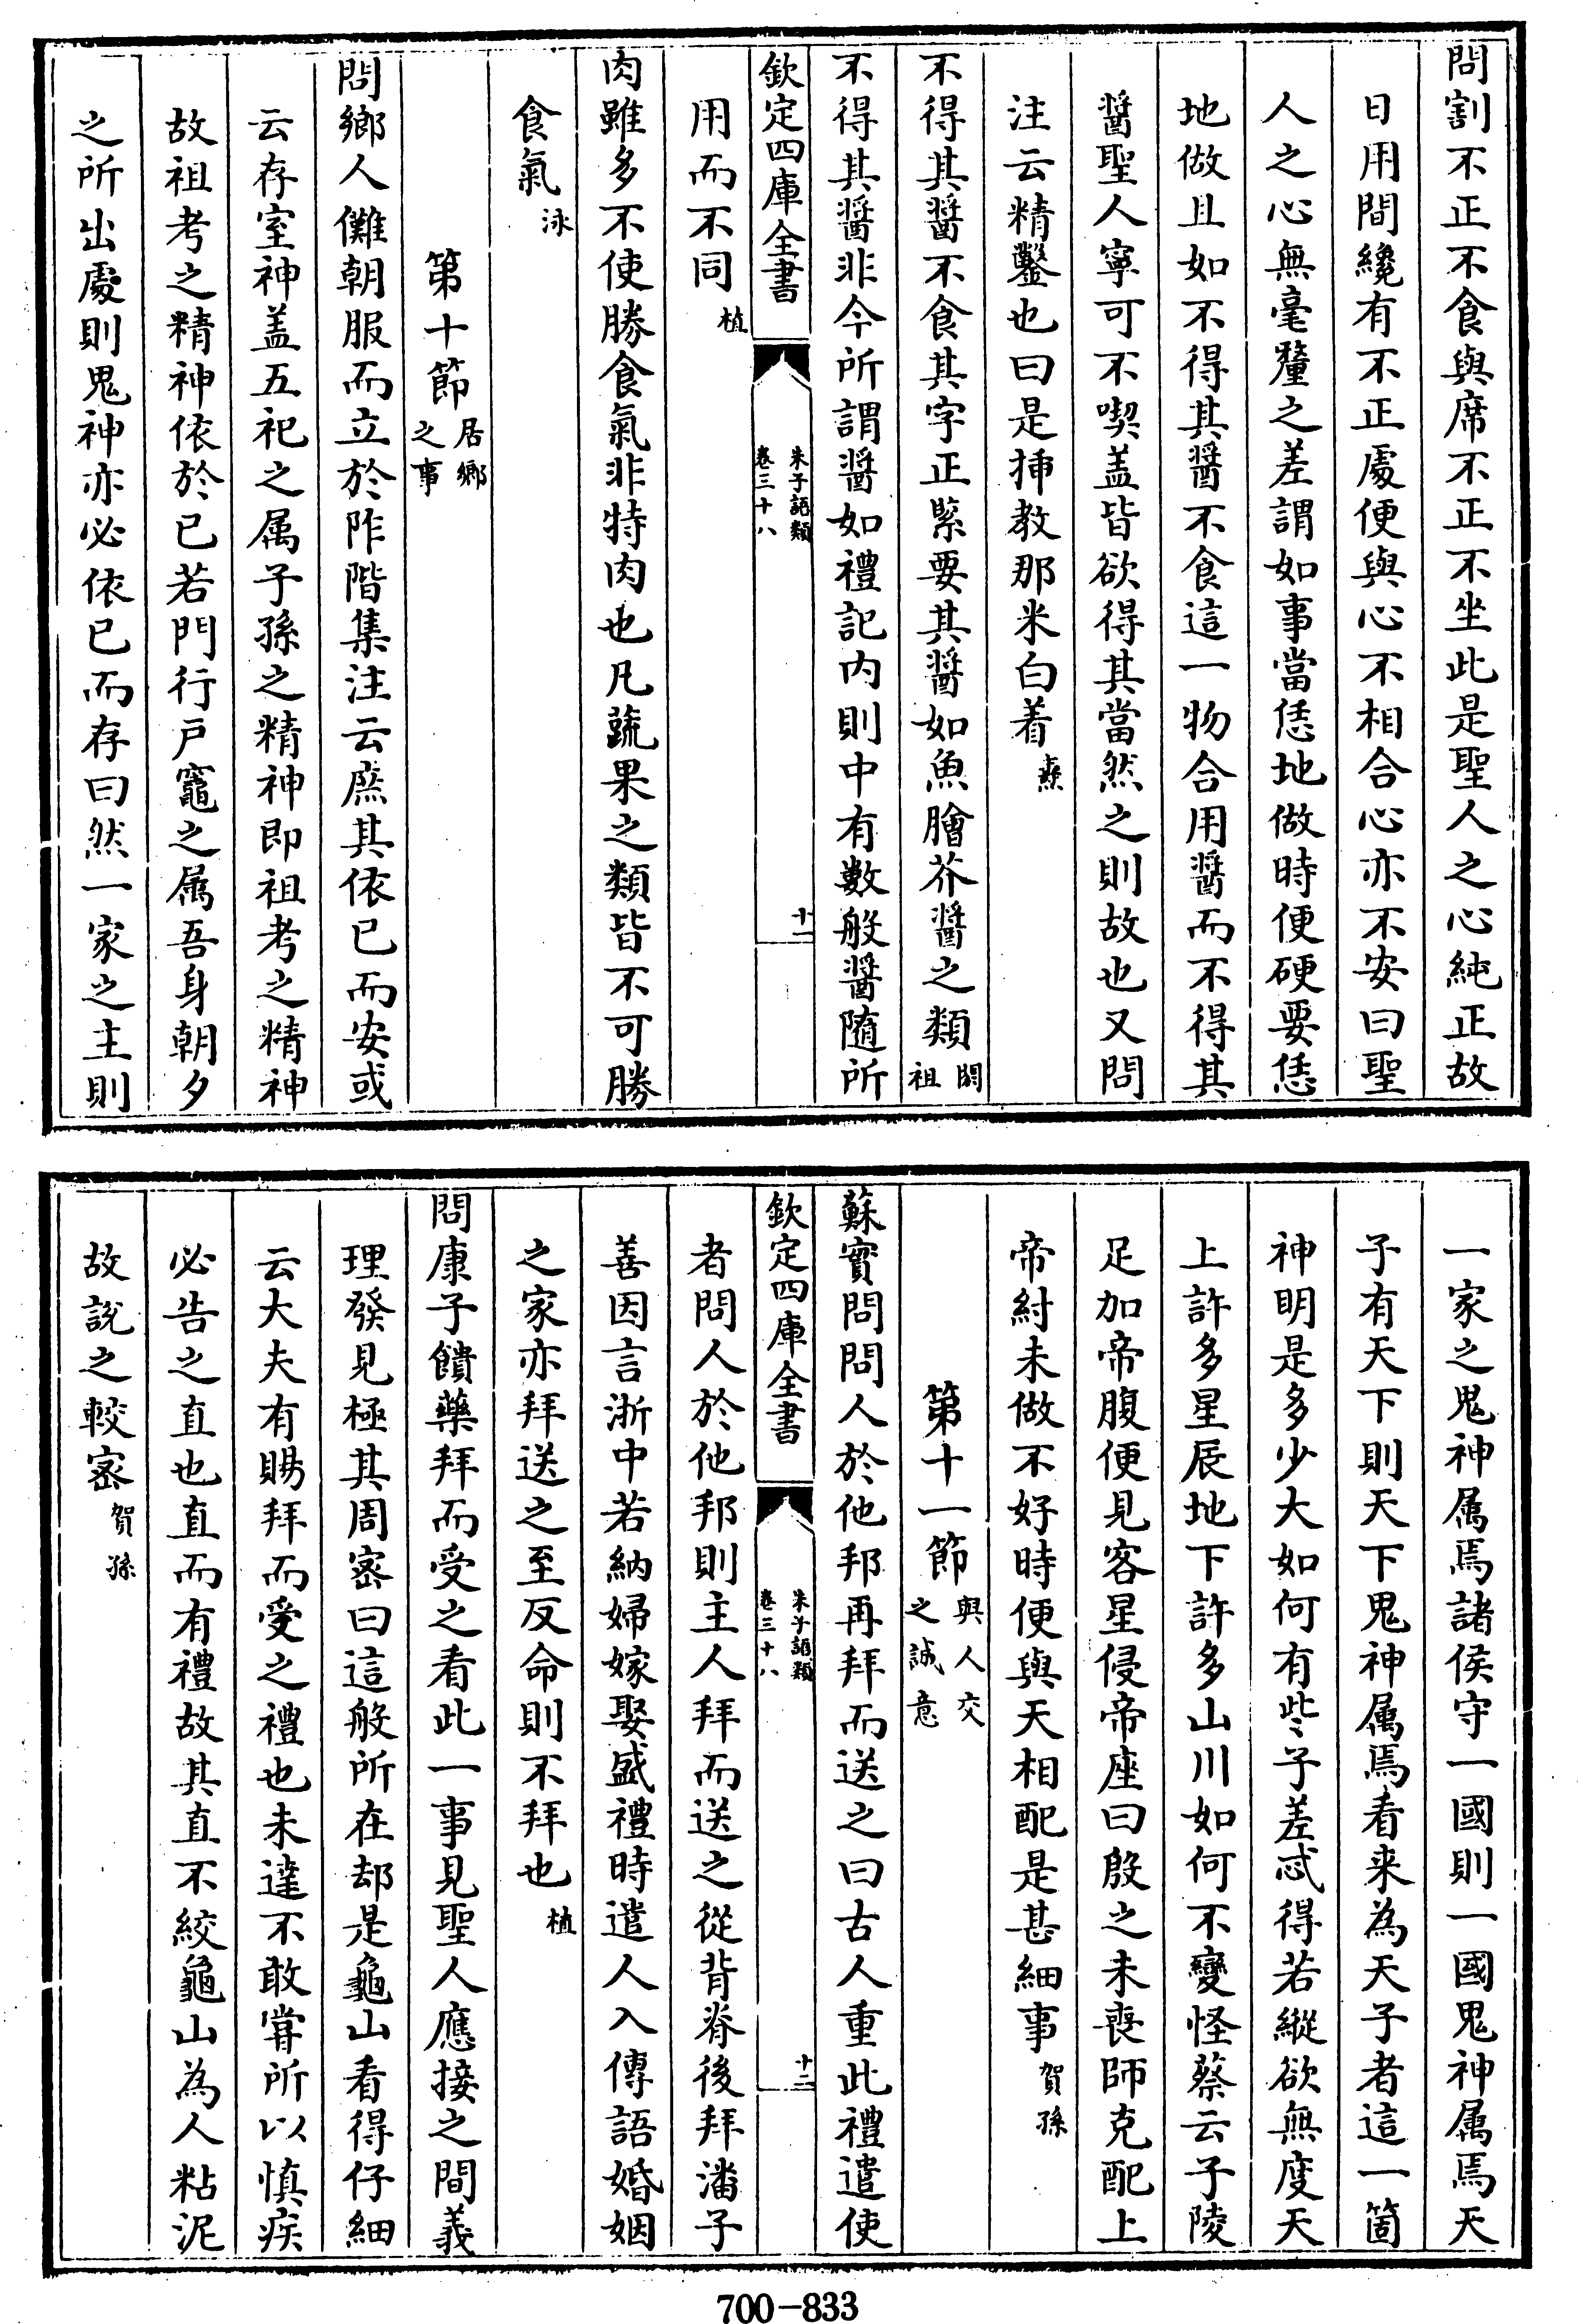 問割不正不食與席不正不坐此是聖人之心純正故
日用間纔有不正處便與心不相合心亦不安曰聖
人之心無毫釐之差謂如事當恁地做時便硬要恁
地做且如不得其醬不食這一物合用醬而不得其
醬聖人寧可不喫盖皆欲得其當然之則故也又問
注云精鑿也曰是揷教那米白着 燾
不得其醬不食其字正緊要其醬如魚膾芥醬之類 閎祖
不得其醬非今所謂醬如禮記内則中有數般醬隨所
欽定四庫全書 朱子語類 卷三十八 十一
用而不同 植
肉雖多不使勝食氣非特肉也凡蔬果之類皆不可勝
食氣 泳
第十節 居鄉之事
問鄉人儺朝服而立於阼階集注云庶其依已而安或
云存室神盖五祀之属子孫之精神即祖考之精神
故祖考之精神依於已若門行戶竈之属吾身朝夕
之所出處則鬼神亦必依已而存曰然一家之主則
一家之鬼神属焉諸侯守一國則一國鬼神属焉天
子有天下則天下鬼神属焉看来為天子者這一箇
神明是多少大如何有些子差忒得若縱欲無度天
上許多星辰地下許多山川如何不變怪蔡云子陵
足加帝腹便見客星侵帝座曰殷之未喪師克配上
帝紂未做不好時便與天相配是甚細事 賀孫
第十一節 與人交之誠意
蘇實問問人於他邦再拜而送之曰古人重此禮遣使
欽定四庫全書 朱子語類 卷三十八 十二
者問人於他邦則主人拜而送之從背脊後拜潘子
善因言浙中若納婦嫁娶盛禮時遣人入傳語婚姻
之家亦拜送之至反命則不拜也 植
問康子饋藥拜而受之看此一事見聖人應接之間義
理發見極其周宻曰這般所在却是龜山看得仔細
云大夫有賜拜而受之禮也未達不敢嘗所以慎疾
必告之直也直而有禮故其直不絞龜山為人粘泥
故說之較宻 賀孫
700-833